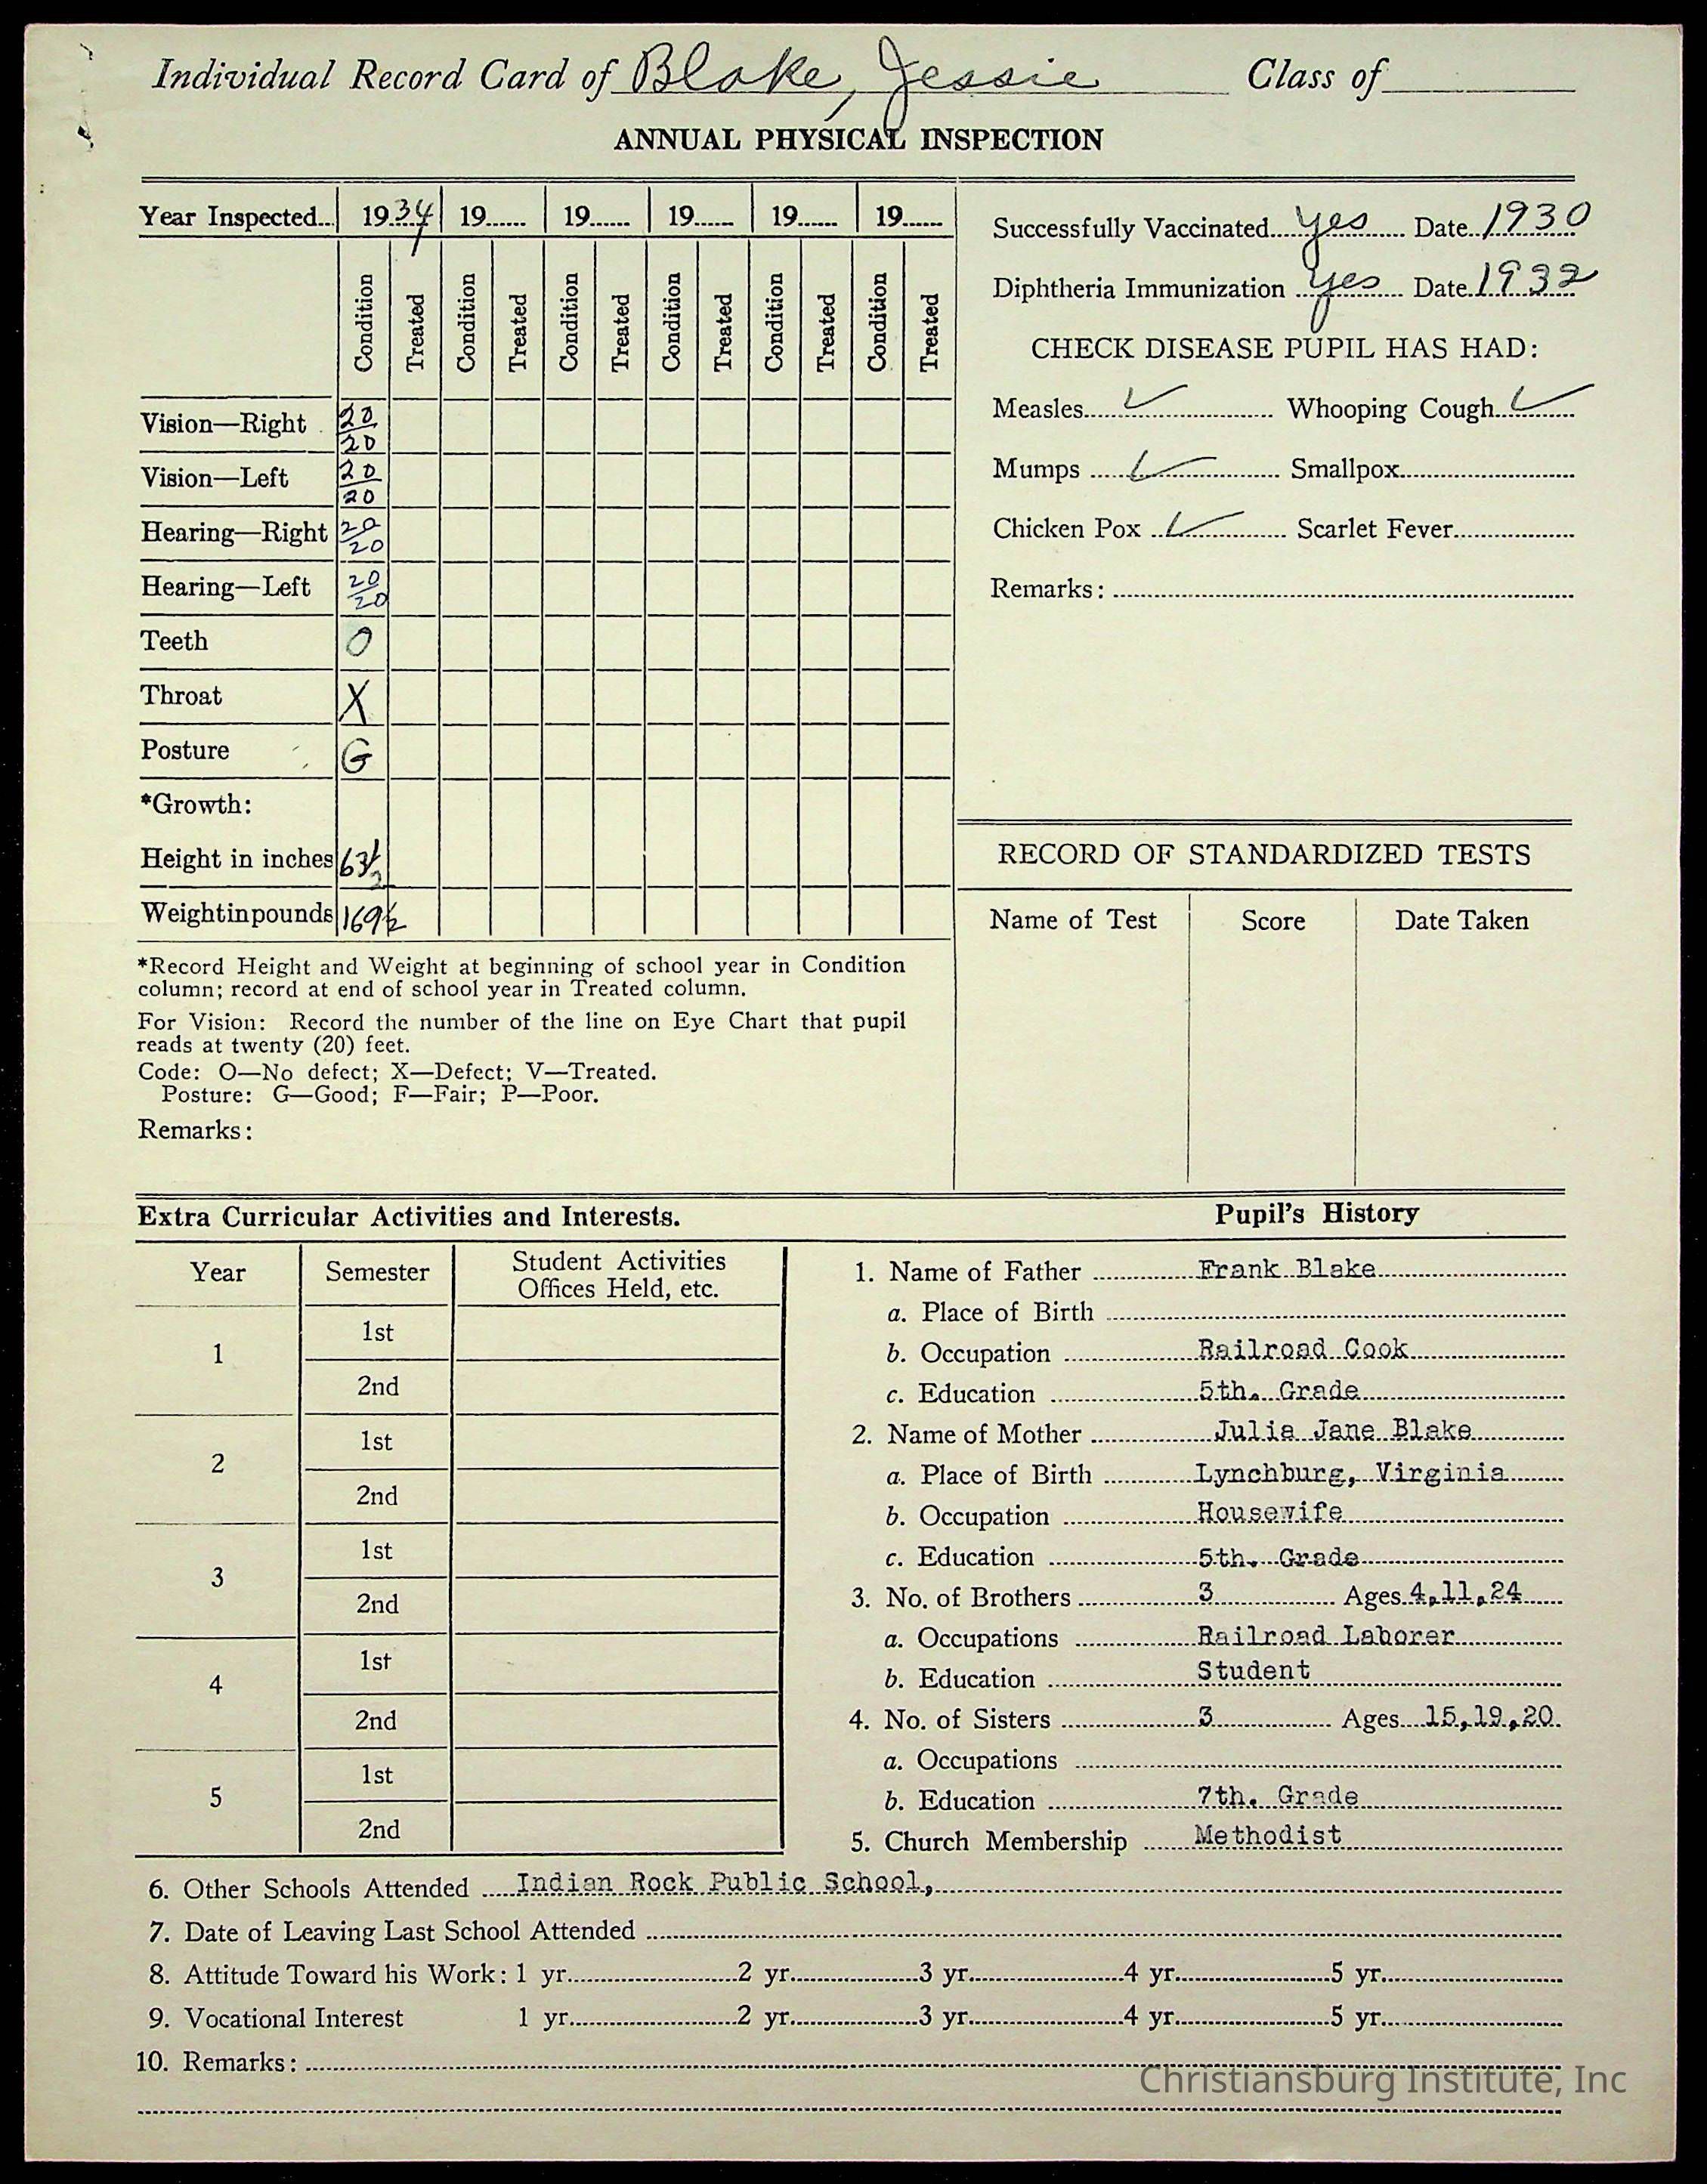 Individual Record Card of Blake, Jessie Class of
ANNUAL PHYSICAL INSPECTION
Year Inspected... 1934 19...... 19...... 19...... 19...... 19......
Condition Treated Condition Treated Condition Treated Condition Treated Condition Treated Condition Treated
Vision—Right 20/20
Vision—Left 20/20
Hearing—Right 20/20
Hearing—Left 20/20
Teeth O
Throat X
Posture G
*Growth:
Height in inches 63½
Weight in pounds 169½
*Record Height and Weight at beginning of school year in Condition
column; record at end of school year in Treated column.
For Vision: Record the number of the line on Eye Chart that pupil
reads at twenty (20) feet.
Code: O—No defect; X—Defect; V—Treated.
Posture: G—Good; F—Fair; P—Poor.
Remarks:
Successfully Vaccinated yes Date 1930
Diphtheria Immunization yes Date 1932
CHECK DISEASE PUPIL HAS HAD:
Measles ✓ Whooping Cough ✓
Mumps ✓ Smallpox
Chicken Pox ✓ Scarlet Fever
Remarks:
RECORD OF STANDARDIZED TESTS
Name of Test Score Date Taken
Extra Curricular Activities and Interests.
Year Semester Student Activities
Offices Held, etc.
1 1st
2nd
2 1st
2nd
3 1st
2nd
4 1st
2nd
5 1st
2nd
Pupil's History
1. Name of Father Frank Blake
a. Place of Birth
b. Occupation Railroad Cook
c. Education 5th. Grade
2. Name of Mother Julia Jane Blake
a. Place of Birth Lynchburg, Virginia
b. Occupation Housewife
c. Education 5th. Grade
3. No. of Brothers 3 Ages 4,11,24
a. Occupations Railroad Laborer
b. Education Student
4. No. of Sisters 3 Ages 15,19,20
a. Occupations
b. Education 7th. Grade
5. Church Membership Methodist
6. Other Schools Attended Indian Rock Public School,
7. Date of Leaving Last School Attended
8. Attitude Toward his Work: 1 yr. 2 yr. 3 yr. 4 yr. 5 yr.
9. Vocational Interest 1 yr. 2 yr. 3 yr. 4 yr. 5 yr.
10. Remarks:
Christiansburg Institute, Inc